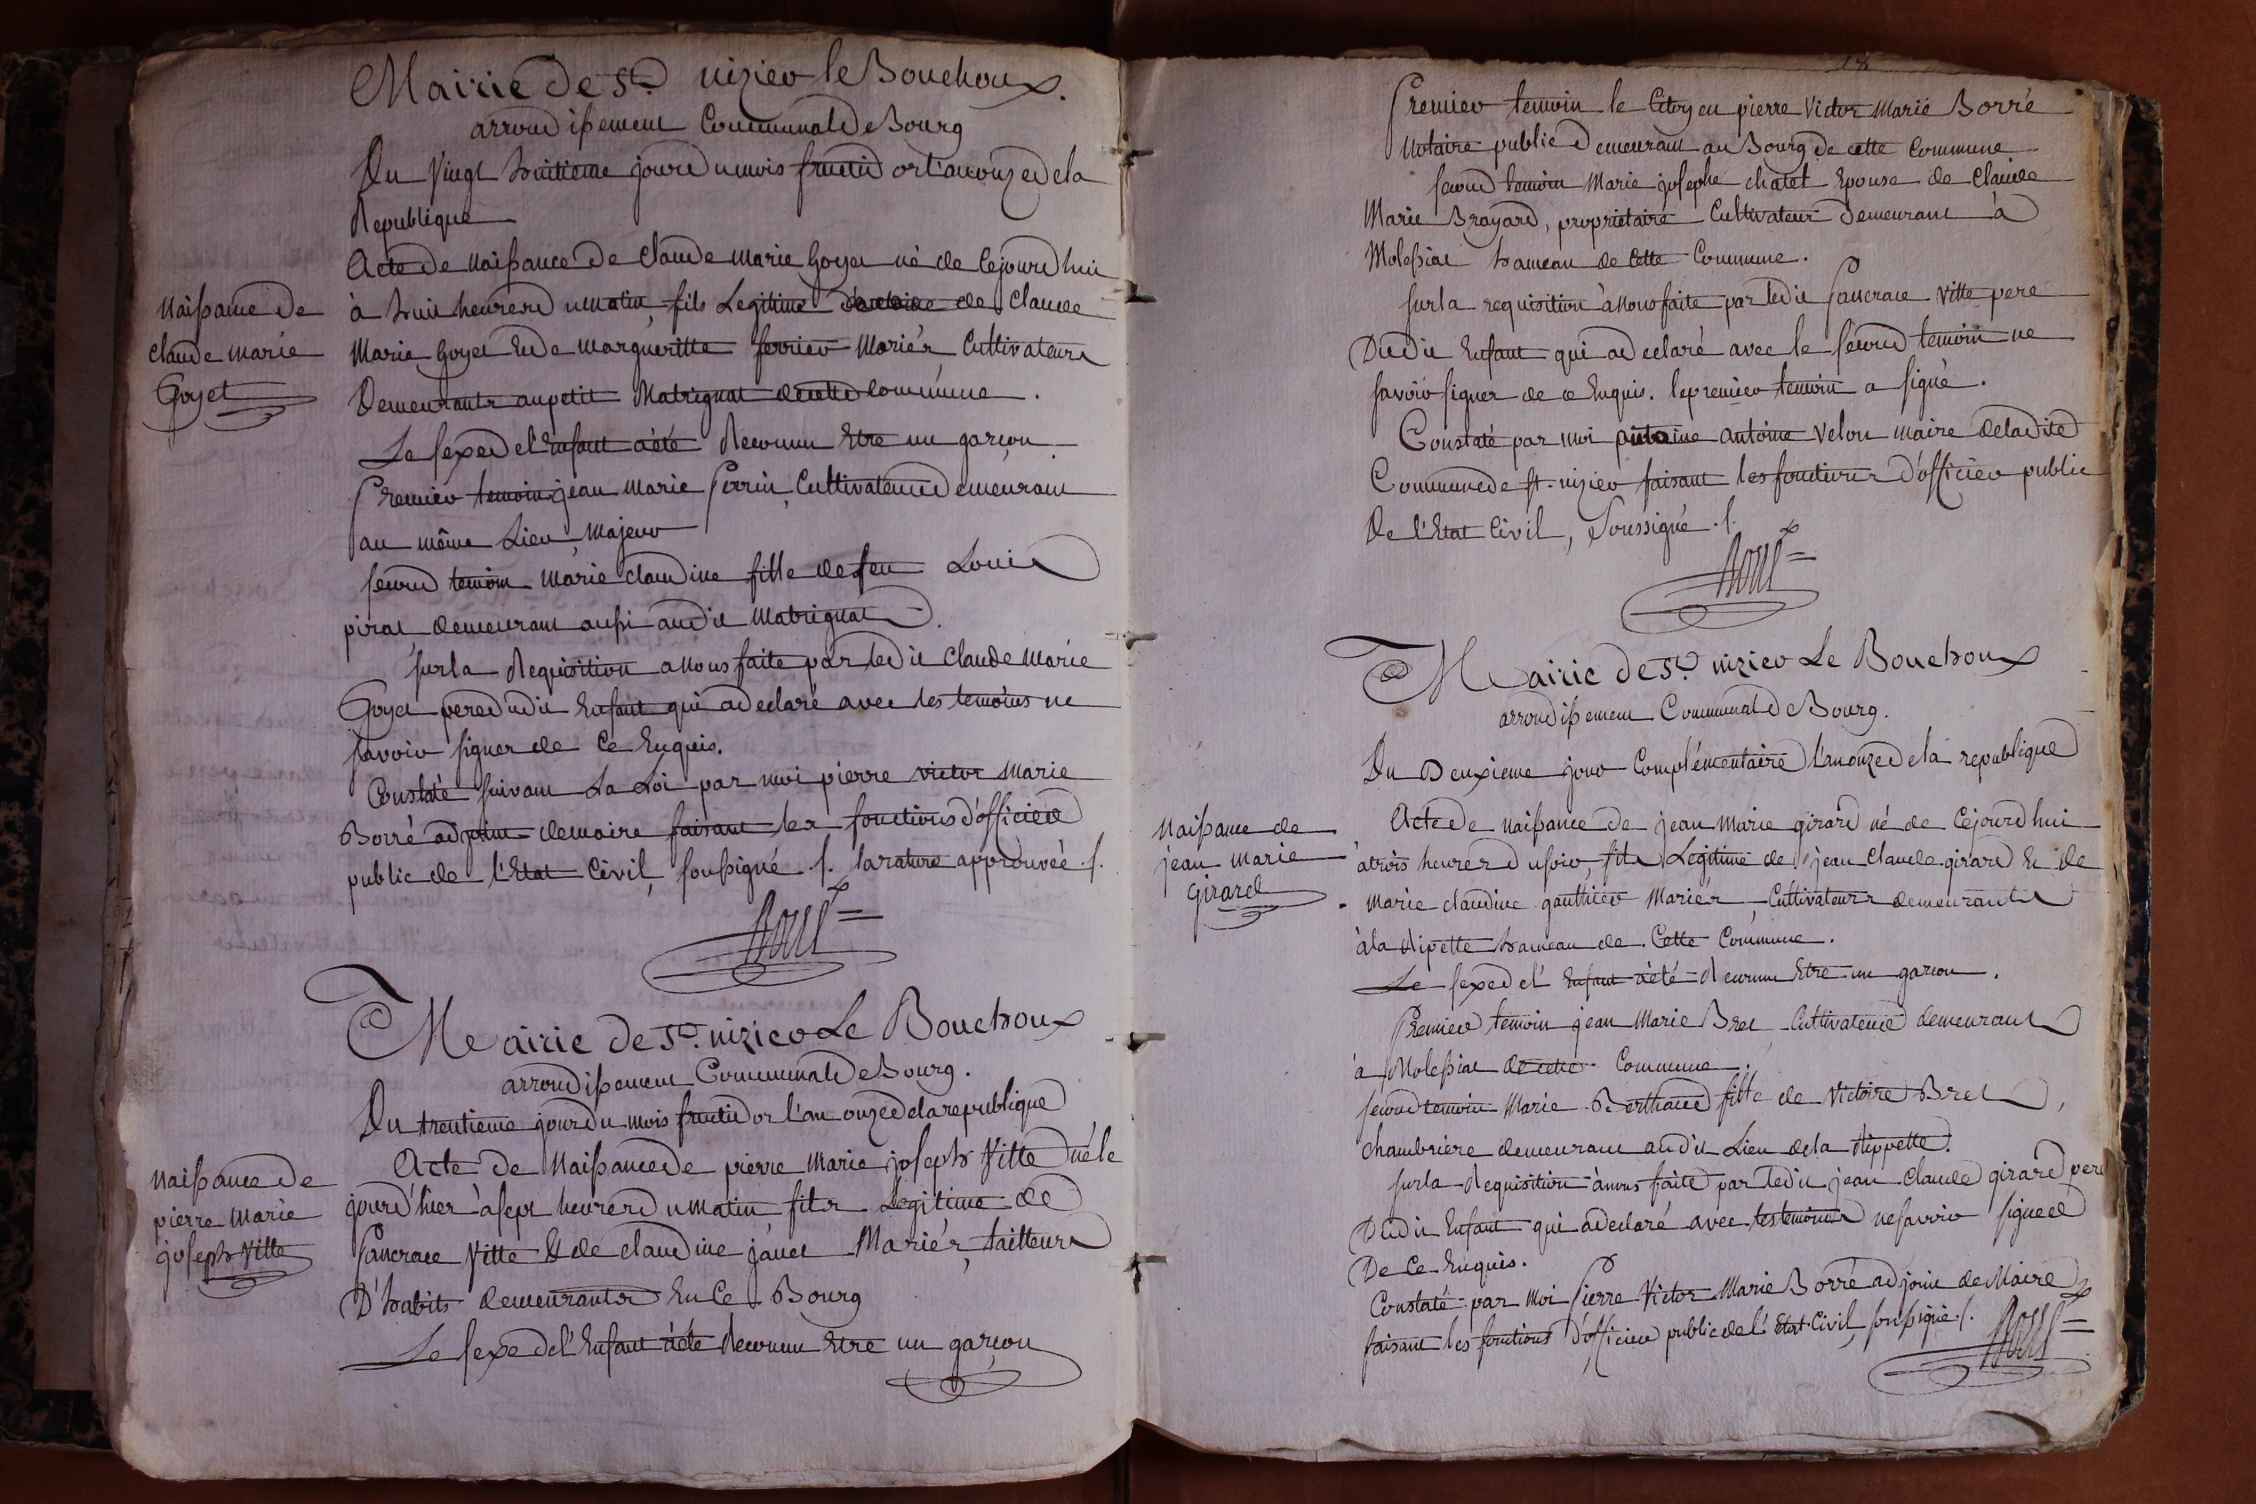 Mairie de St. nizier le Bouchoux.
arrondissement Communal de Bourg
Du Vingt huitieme jour du mois fructidor l'an onze de la
Republique
Acte de Naissance de Claude Marie Goyet né de Cejourdhui
à huit heures du matin, fils Legitime de Claude
Marie Goyet Et de Margueritte ferrier Mariés Cultivateurs
Demeurants au petit Matrignat de cette commune.
Naissance de
Claude Marie
Goyet
Le sexe de l'Enfant a été Reconnu Etre un garçon.
Premier temoin jean Marie Perrin, Cultivateur demeurant
au même Lieu, Majeur
second temoin Marie claudine fille de feu Louis
pirat demeurant aussi audit Matrignat.
sur la Requisition a nous faite par ledit Claude Marie
Goyet pere dudit Enfant qui a declaré avec les temoins ne
savoir signer de Ce Enquis.
Constaté suivant La Loi par moi pierre victor Marie
Borré adjoint de maire faisant les fonctions d'officier
public de l'Etat Civil, soussigné ./. la rature approuvée ./.
Mairie de St. nizier Le Bouchoux
arrondissement Communal de Bourg.
Du trentieme jour du mois fructidor l'an onze de la republique
Acte de Naissance de pierre Marie joseph Vitte né le
jourd'hier à sept heures du matin, fils Legitime de
Pancrace Vitte Et de claudine janet Mariés, tailleurs
D'habits demeurants En Ce Bourg
Naissance de
pierre Marie
joseph Vitte
Le sexe de l'Enfant a été Reconnu Etre un garçon
18
Premier temoin le Citoyen pierre Victor Marie Borré
Notaire public demeurant au Bourg de cette Commune
second temoin Marie josephe chatel Epouse de Claude
Marie Brayard, proprietaire Cultivateur demeurant à
Molessiat hameau de Cette Commune.
sur la requisition à Nous faite par ledit Pancrace Vitte pere
Dudit Enfant qui a declaré avec le second temoin ne
savoir signer de ce Enquis. le premier temoin a signé.
Constaté par moi antoine Velon maire de ladite
Commune de st. nizier faisant les fonctions d'officier public
De l'Etat Civil, Soussigné ./.
Mairie de St. nizier Le Bouchoux
arrondissement Communal de Bourg.
Du Deuxieme jour Complémentaire l'an onze de la republique
Acte de naissance de jean Marie girard né de Cejourdhui
à trois heures du soir, fils Legitime de jean Claude girard Et de
Marie claudine gauthier Mariés, Cultivateurs demeurants
à la Ripette hameau de Cette Commune.
Naissance de
jean Marie
Girard
Le sexe de l'Enfant a été Reconnu Etre un garcon.
Premier temoin jean Marie Bret Cultivateur demeurant
à Molessiat de cette Commune.
second temoin Marie Berthaud fille de Victoire Bret,
Chambriere demeurant audit Lieu de la Rippette.
sur la Requisition à nous faite par ledit jean Claude girard pere
Dudit Enfant qui a declaré avec les temoins ne savoir signer
De Ce Enquis.
Constaté par Moi Pierre Victor Marie Borré adjoint de Maire
faisant les fonctions d'officier public de l'Etat Civil, soussigné ./.